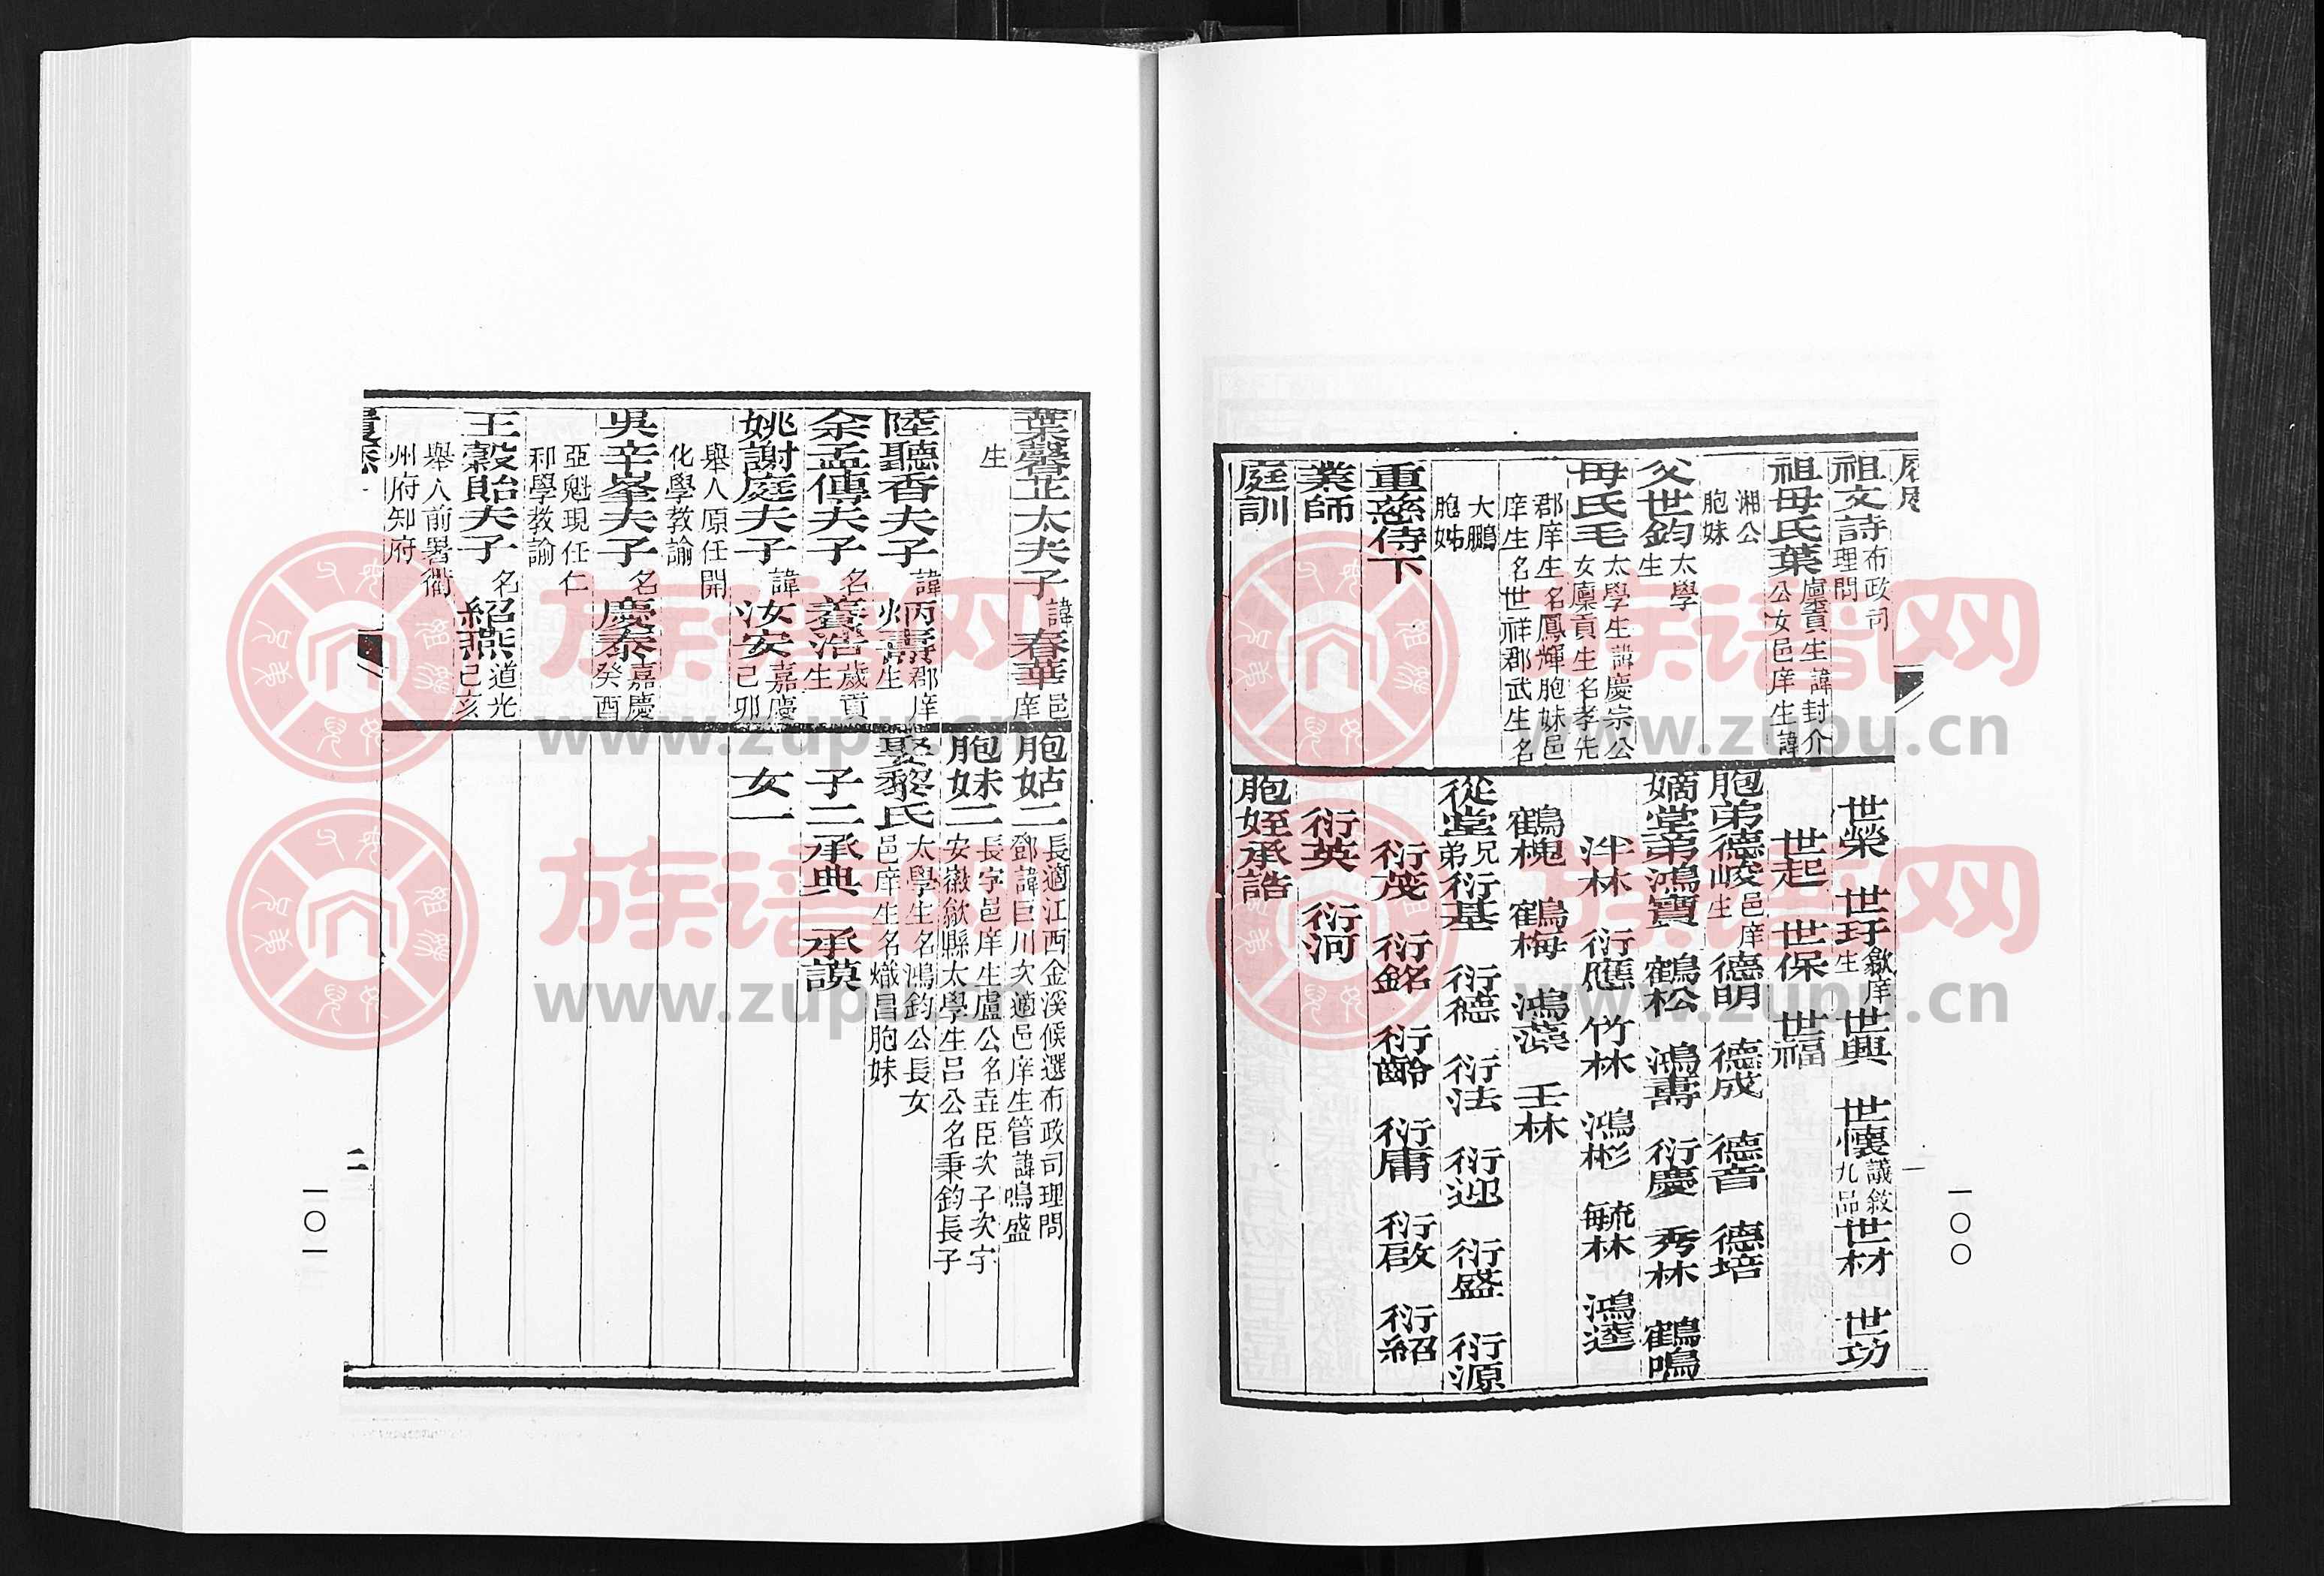 履歷
祖文詩布政司理問
祖母氏葉廩貢生諱封介公女邑庠生諱
湘公胞妹
父世鈞太學生
母氏毛太學生諱慶宗公女廩貢生名孝先
郡庠生名鳳輝胞妹邑庠生名世祥郡武生名
大鵬胞姊
重慈侍下
業師
庭訓
世榮 世玗歙庠生 世興 世懷議敘九品 世材 世功
世起 世保 世福
胞弟德峻邑庠生 德明 德成 德音 德培
嫡堂弟鴻寶 鶴松 鴻壽 衍慶 秀林 鶴鳴
泮林 衍應 竹林 鴻彬 毓林 鴻逵
鶴槐 鶴梅 鴻藻 壬林
從堂兄弟衍基 衍德 衍法 衍迎 衍盛 衍源
衍茂 衍銘 衍齡 衍庸 衍啟 衍紹
衍英 衍河
胞姪承誥
一
一〇〇
葉馨芷太夫子諱春華邑庠
生
陸聽香夫子諱炳壽郡庠生
余孟傳夫子名養浩歲貢生
姚謝庭夫子諱汝安嘉慶己卯
舉人原任開化學教諭
吳辛峯夫子名慶泰嘉慶癸酉
亞魁現任仁和學教諭
王穀貽夫子名紹燕道光己亥
舉人前署衢州府知府
胞姑二長適江西金溪候選布政司理問鄧諱巨川次適邑庠生管諱鳴盛
胞妹二長字邑庠生盧公名垚臣次子次字安徽歙縣太學生呂公名秉鈞長子
娶黎氏太學生名鴻鈞公長女邑庠生名熾昌胞妹
子二承典 承謨
女一
二
一〇一
族谱网
www.zupu.cn
族谱网
www.zupu.cn
族谱网
www.zupu.cn
族谱网
www.zupu.cn